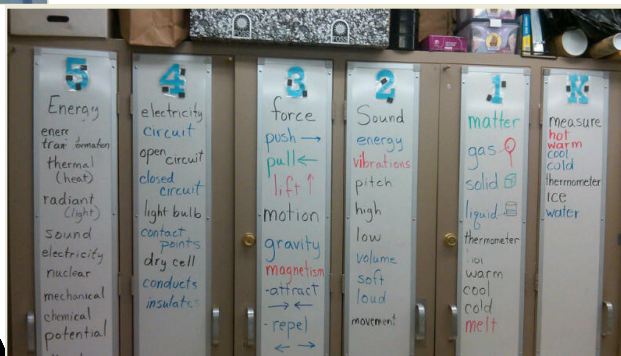 5
Energy
thermal
(heat)
radiant
(light)
sound
electricity
nuclear
mechanical
chemical
potential
4
electricity
circuit
open
circuit
closed
circuit
light bulb
contact
points
dry cell
conducts
3
force
push →
pull ←
lift ↑
-motion
gravity
magnetism
-attract
→ ←
-repel
← →
2
Sound
energy
vibrations
pitch
high
low
volume
soft
loud
movement
1
matter
gas
solid
liquid
thermometer
warm
cool
cold
melt
K
measure
hot
warm
cool
cold
thermometer
ice
water